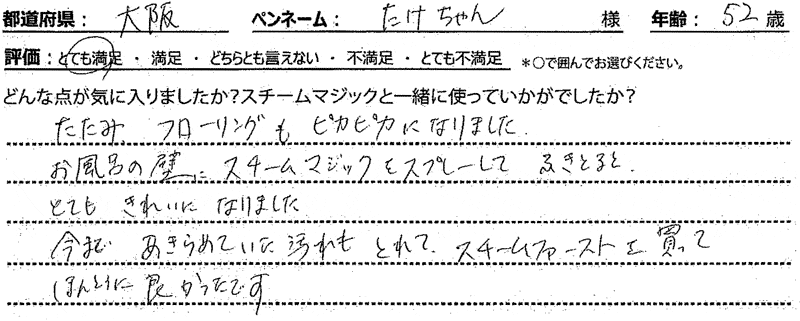 都道府県： 大阪 ペンネーム： たけちゃん 様 年齢： 52 歳
評価： とても満足 ・ 満足 ・ どちらとも言えない ・ 不満足 ・ とても不満足 ＊○で囲んでお選びください。
どんな点が気に入りましたか？スチームマジックと一緒に使っていかがでしたか？
たたみ、フローリングも ピカピカに なりました.
お風呂の壁に スチームマジックをスプレーして ふきとると.
とても きれいに なりました
今まで あきらめていた 汚れも とれて. スチームファーストを 買って
ほんとうに 良かったです